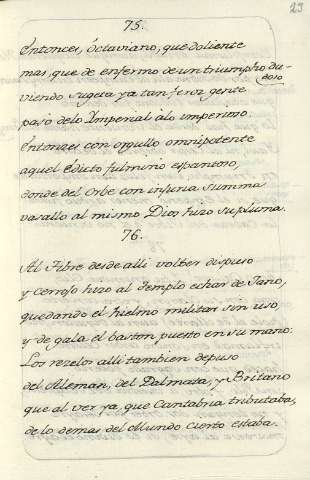 23
75.
Entonces, Octaviano, que doliente
mas, que de enfermo de un triumpho du-
doso
viendo sugeta ya tan feroz gente
pasó de lo Imperial à lo imperioso.
Entonces con orgullo omnipotente
aquel Edicto fulminó espantoso,
donde del Orbe con injuria summa
vasallo al mismo Dios hizo su pluma.
76.
Al Tibre desde alli volber dispuso
y cerrojo hizo al Templo echar de Jano,
quedando el hielmo militar sin uso,
y de gala el baston puesto en su mano:
Los rezelos alli tambien depuso
del Aleman, del Dalmata, y Britano
que al ver ya, que Cantabria tributaba,
de lo demas del Mundo cierto estaba.